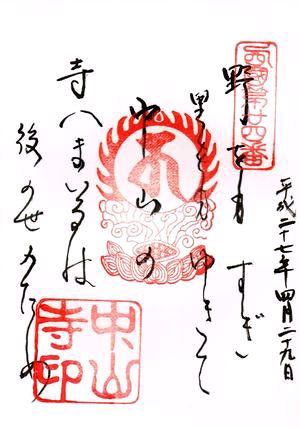 西國第廿四番
平成二十七年四月二十九日
野をもすぎ
里をもゆきて
中山の
寺へまいるは
後の世のため
中山寺印